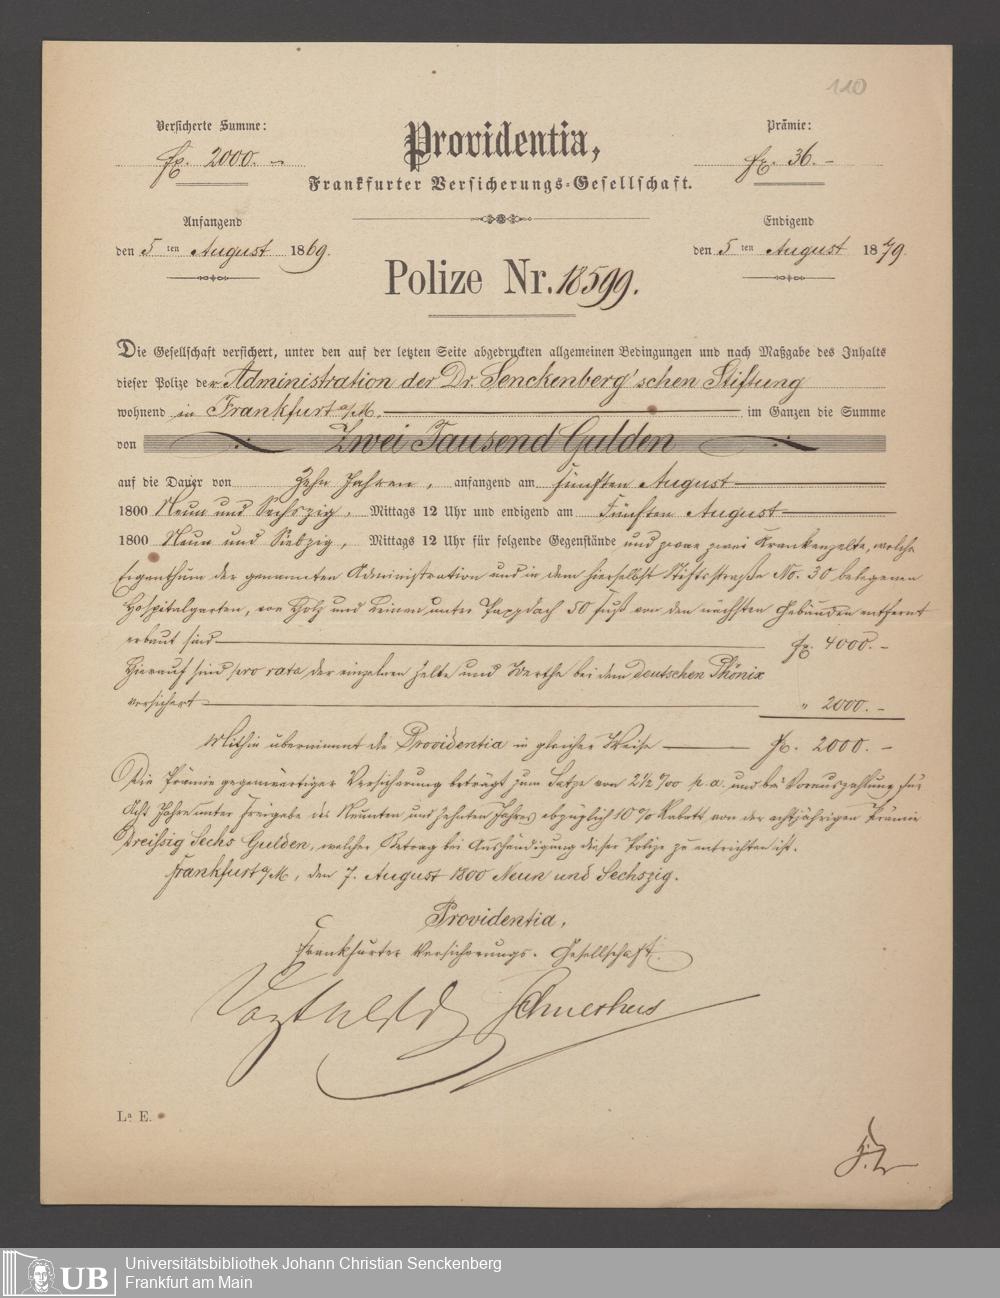 110
Versicherte Summe:
fl. 2000. –
Providentia,
Frankfurter Versicherungs-Gesellschaft.
Prämie:
fl. 36. –
Anfangend
den 5 ten August 1869.
Endigend
den 5 ten August 1879.
Polize Nr. 18599.
Die Gesellschaft versichert, unter den auf der letzten Seite abgedruckten allgemeinen Bedingungen und nach Maßgabe des Inhalts
dieser Polize der Administration der Dr. Senckenberg'schen Stiftung
wohnend in Frankfurt a/M. im Ganzen die Summe
von Zwei Tausend Gulden
auf die Dauer von Zehn Jahren, anfangend am fünften August
1800 Neun und Sechszig, Mittags 12 Uhr und endigend am Fünften August
1800 Neun und Siebzig, Mittags 12 Uhr für folgende Gegenstände und zwar zwei Krankenzelte, welche
Eigenthum der genannten Administration und in dem hierselbst Stiftsstraße No. 30 belegenen
Hospitalgarten, von Holz und Leinen unter Pappdach 50 Fuß von den nächsten Gebäuden entfernt
erbaut sind fl. 4000. –
Hierauf sind pro rata der einzelnen Zelte und Werthe bei dem deutschen Phönix
versichert " 2000. –
Mithin übernimmt die Providentia in gleicher Weise fl. 2000. –
Die Prämie gegenwärtiger Versicherung beträgt zum Satze von 2½ ‰ p. a. und bei Vorauszahlung für
Acht Jahre unter Freigabe des Neunten und zehnten Jahres abzüglich 10 % Rabatt von der achtjährigen Prämie
Dreissig Sechs Gulden, welcher Betrag bei Aushändigung dieser Polize zu entrichten ist.
Frankfurt a/M, den 7. August 1800 Neun und Sechszig.
Providentia,
Frankfurter Versicherungs-Gesellschaft.
Lª. E.
UB
Universitätsbibliothek Johann Christian Senckenberg
Frankfurt am Main